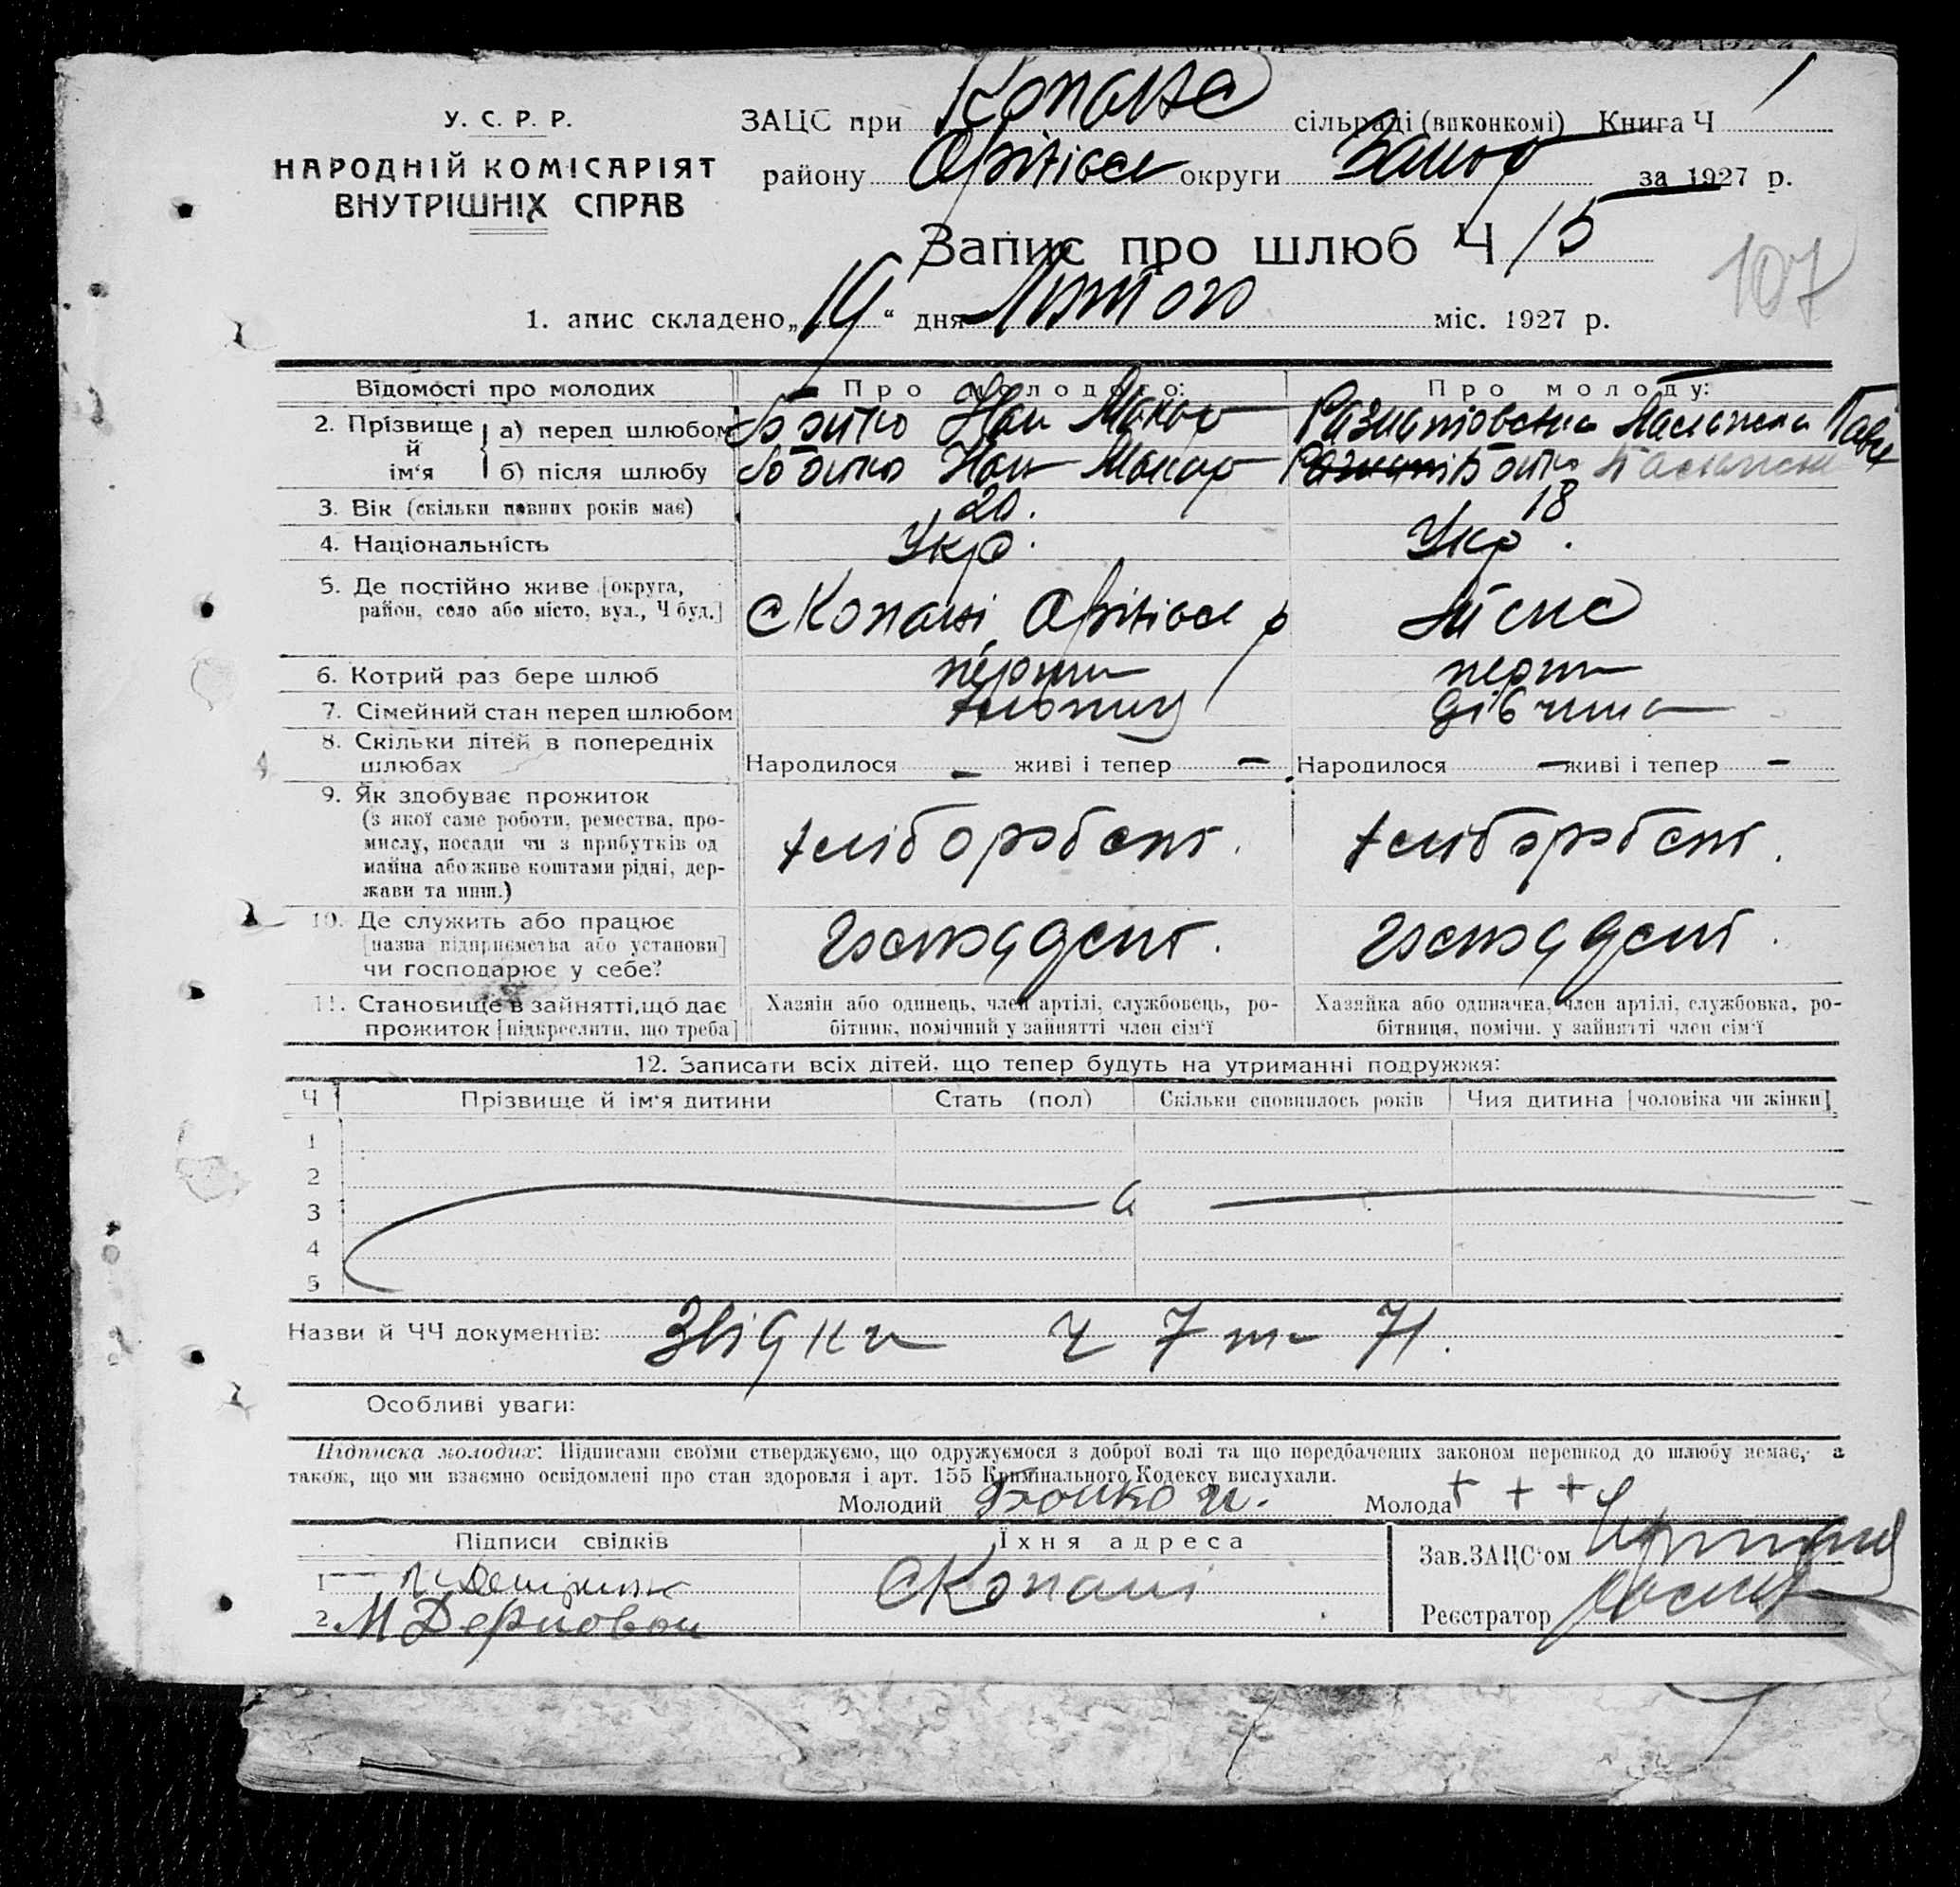 У. С. Р. Р.
НАРОДНІЙ КОМІСАРІЯТ
ВНУТРІШНІХ СПРАВ
ЗАЦС при сільраді (виконкомі) Книга Ч 1
району округи за 1927 р.
Запис про шлюб Ч 15
107
1. апис складено „19“ дня Лютого міс. 1927 р.
Відомості про молодих Про молодого: Про молоду:
2. Прізвище й ім‘я
а) перед шлюбом Бойко Макар
б) після шлюбу Бойко Макар Бойко
3. Вік (скільки повних років має) 20. 18
4. Національність Укр. Укр.
5. Де постійно живе [округа, район, село або місто, вул., Ч буд.] с Копані р
6. Котрий раз бере шлюб перший перш
7. Сімейний стан перед шлюбом хлопець дівчина
8. Скільки дітей в попередніх шлюбах Народилося – живі і тепер – Народилося – живі і тепер –
9. Як здобуває прожиток
(з якої саме роботи, ремества, про-
мислу, посади чи з прибутків од
майна або живе коштами рідні, дер-
жави та инш.)
хліборобст. хлiборобст.
10. Де служить або працює
[назва підприємства або установи]
чи господарює у себе?
11. Становище в зайнятті, що дає
прожиток [підкреслити, що треба]
Хазяін або одинець, член артілі, службовець, ро-
бітник, помічний у зайнятті член сім‘ї
Хазяйка або одиначка, член артілі, службовка, ро-
бітниця, помічн. у зайнятті член сім‘ї
12. Записати всіх дітей, що тепер будуть на утриманні подружжя:
Ч Прізвище й ім‘я дитини Стать (пол) Скільки сповнилось років Чия дитина [чоловіка чи жінки]
1
2
3
4
5
Назви й ЧЧ документів: Звідки ч 7 та 71.
Особливі уваги:
Підписка молодих: Підписами своїми стверджуємо, що одружуємося з доброї волі та що передбачених законом перешкод до шлюбу немає, а
також, що ми взаємно освідомлені про стан здоровля і арт. 155 Кримінального Кодексу вислухали.
Молодий Бойко И. Молода + + +
Підписи свідків Їхня адреса
1
2 М
с Копані
Зав. ЗАЦС‘ом
Реєстратор